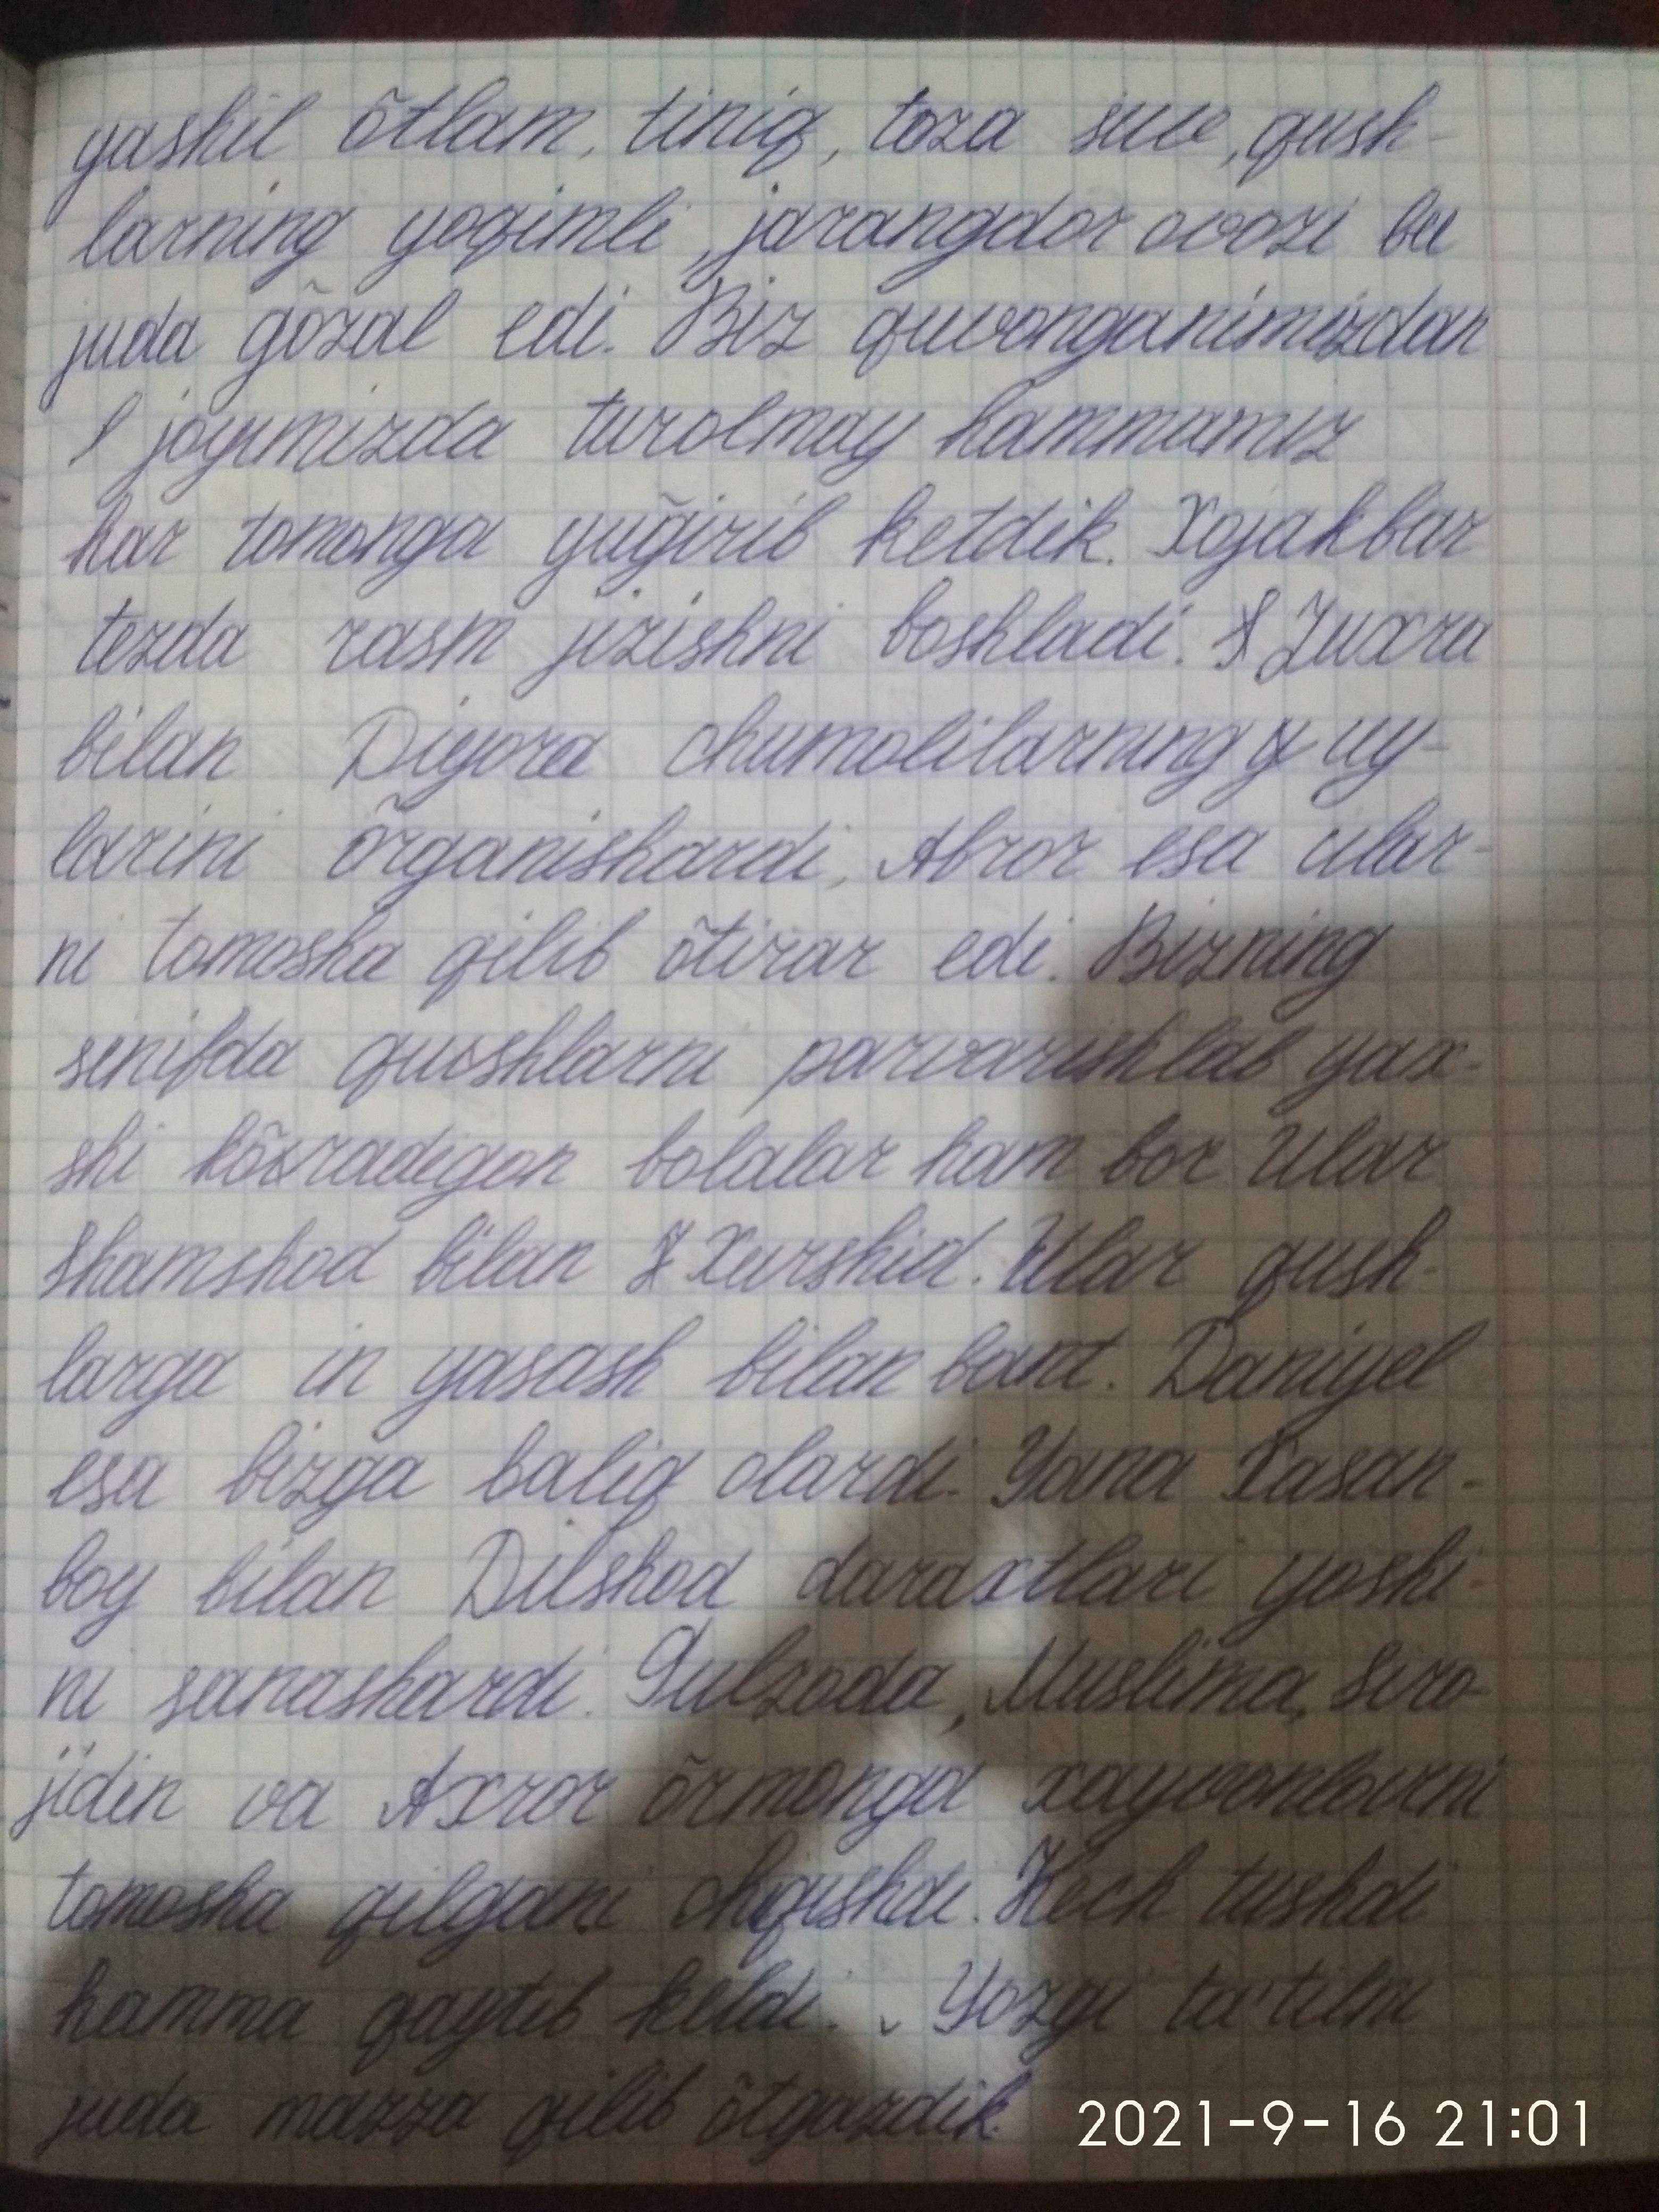 yashil õtlam, tiniq, toza suv, qush-
larning yoqimli, jarangdor ovozi bu
juda gõzal edi. Biz quvonganimizdan
joyimizda turolmay hammamiz
har tomonga yug̃irib ketdik. Xojakbar
tezda rasm jizishni boshladi. Zuxra
bilan Diyora chumolilarning uy-
larini õrganishardi, Abror esa ular-
ni tomosha qilib õtirar edi. Bizning
sinifda qushlarni parvarishlab yax-
shi kõradigon bolalar ham bor Ular
Shamshod bilan Xurshid. Ular qush-
larga in yasash bilan bant. Daniyel
esa bizga baliq olardi. Yana Xasan-
boy bilan Dilshod daraxtlari yoshi-
ni sanashardi. Gulzoda, Muslima, Siro-
jidin va Axror õrmonga xayvonlarni
tomosha qilgani chiqishdi. Kech tushdi
hamma qaytib keldi. Yozgi ta'tilni
juda mazza qilib õtgazdik.
2021-9-16 21:01